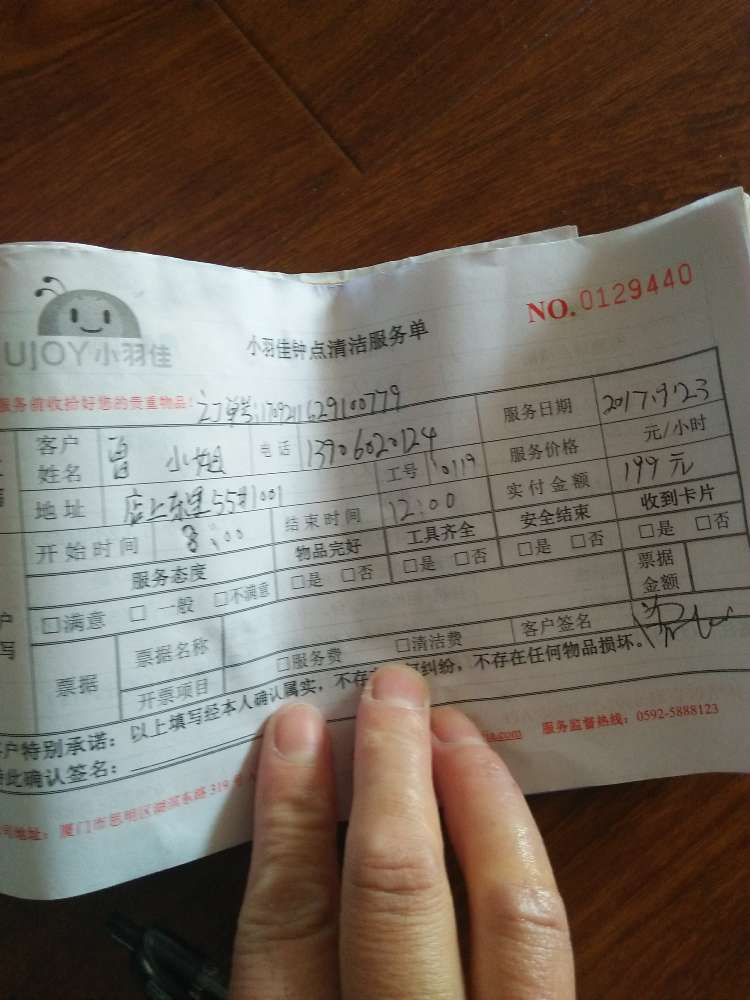 NO.0129440
UJOY小羽佳
小羽佳钟点清洁服务单
服务前收拾好您的贵重物品!
订单号:170921629100779
客户姓名 曾小姐 电话 13906020124 服务日期 2017.9.23
地址 店上东里55#1001 工号 10119 服务价格 元/小时
开始时间 8:00 结束时间 12:00 实付金额 199元
服务态度 物品完好 工具齐全 安全结束 收到卡片
□满意 □一般 □不满意 □是 □否 □是 □否 □是 □否 □是 □否
票据 票据名称 票据金额
开票项目 □服务费 □清洁费 客户签名
户特别承诺:以上填写经本人确认属实,不存 纠纷,不存在任何物品损坏。
此确认签名:
司地址:厦门市思明区湖滨东路319号 .com 服务监督热线:0592-5888123